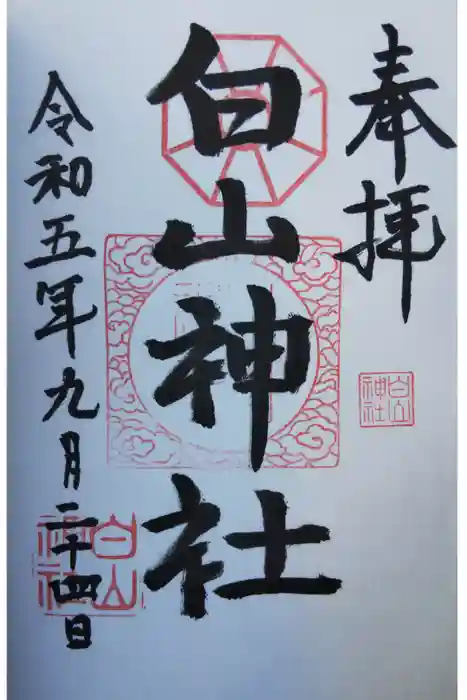 奉拝
白山神社
白山神社
令和五年九月二十四日
白山神社